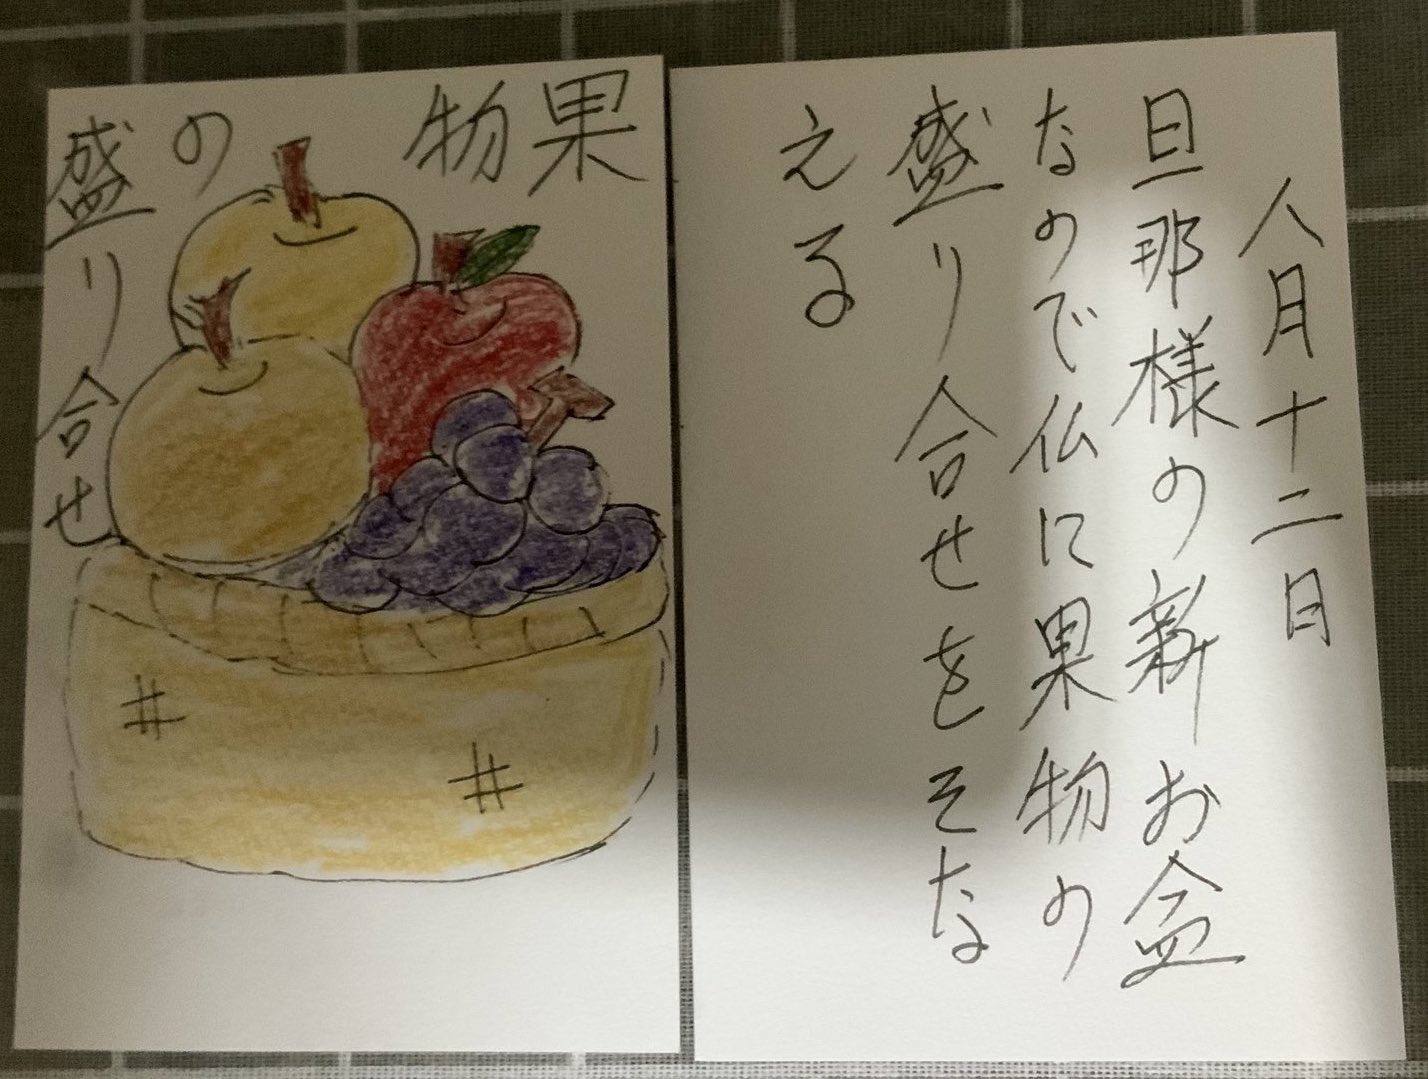 果物の
盛り合せ
八月十二日
旦那様の新お盆
なので仏に果物の
盛り合せをそな
える